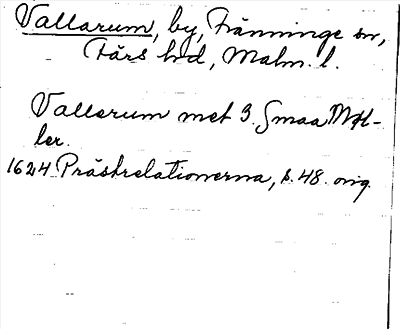 Vallarum, by, Tränninge sn,
Färs hd, Malm. l.
Vallerum met 3 Smaa Møl-
ler.
1624 Prästrelationerna, s. 48. orig.